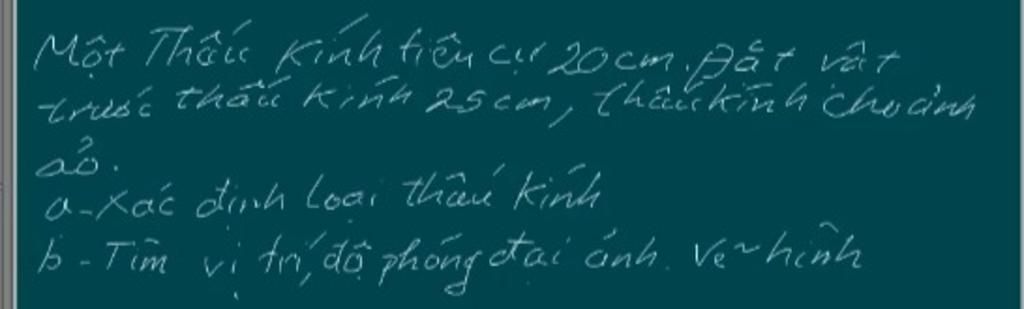 Một Thấu kính tiêu cự 20cm. Đặt vật
trước thấu kính 25cm, thấu kính cho ảnh
ảo.
a-Xác định loại thấu kính
b-Tìm vị trí, độ phóng đại ảnh. Vẽ hình